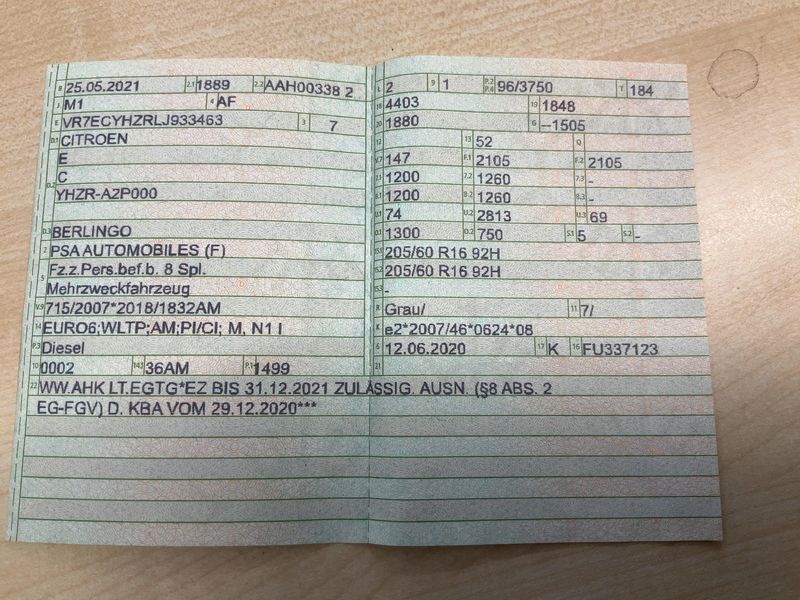 B 25.05.2021 2.1 1889 2.2 AAH00338 2
J M1 4 AF
E VR7ECYHZRLJ933463 3 7
D.1 CITROEN
E
D.2 C
YHZR-A2P000
D.3 BERLINGO
2 PSA AUTOMOBILES (F)
5 Fz.z.Pers.bef.b. 8 Spl.
Mehrzweckfahrzeug
V.9 715/2007*2018/1832AM
14 EURO6;WLTP;AM;PI/CI; M, N1 I
P.3 Diesel
10 0002 14.1 36AM P.1 1499
22 WW.AHK LT.EGTG*EZ BIS 31.12.2021 ZULÄSSIG. AUSN. (§8 ABS. 2
EG-FGV) D. KBA VOM 29.12.2020***
L 2 9 1 P.2 P.4 96/3750 T 184
18 4403 19 1848
20 1880 G --1505
12 13 52 Q
V.7 147 F.1 2105 F.2 2105
7.1 1200 7.2 1260 7.3 -
8.1 1200 8.2 1260 8.3 -
U.1 74 U.2 2813 U.3 69
O.1 1300 O.2 750 S.1 5 S.2 -
15.1 205/60 R16 92H
15.2 205/60 R16 92H
15.3 -
R Grau/ 11 7/
K e2*2007/46*0624*08
6 12.06.2020 17 K 16 FU337123
21